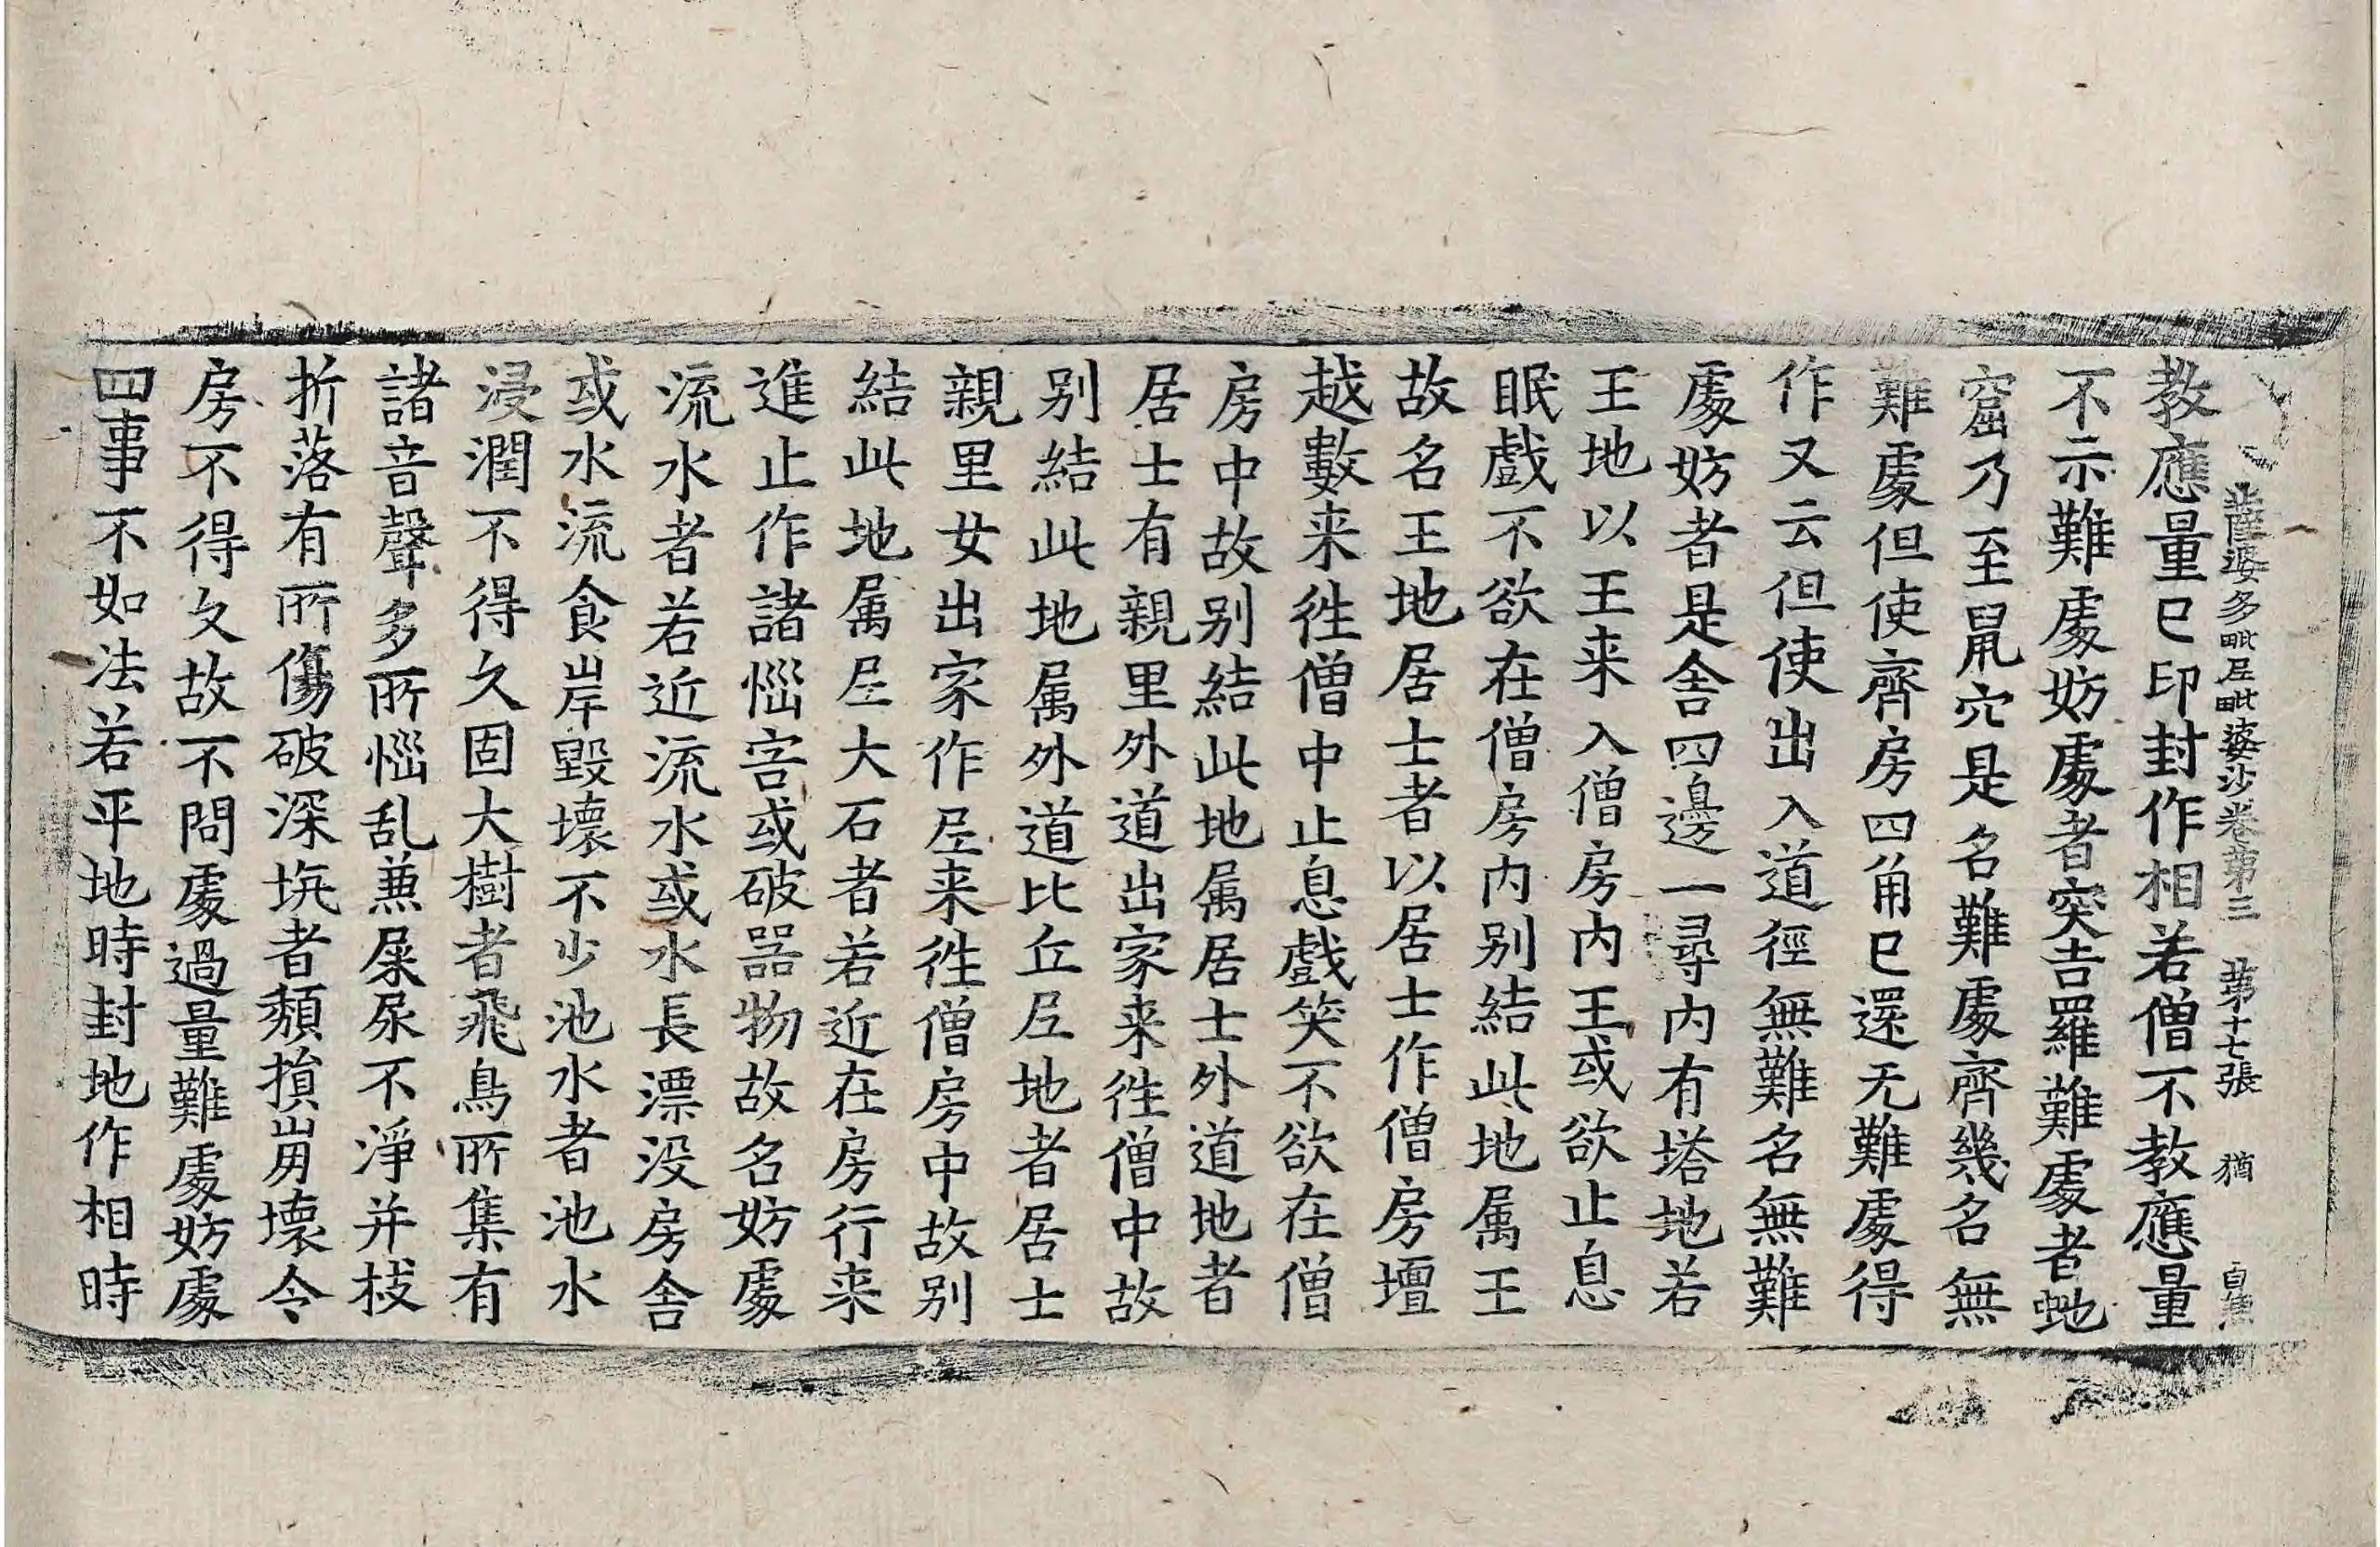 薩婆多毗尼毗婆沙卷第三　第十七張　猶
教應量已印封作相若僧不教應量
不示難處妨處者突吉羅難處者虵
窟乃至鼠穴是名難處齊幾名無
難處但使齊房四角已還无難處得
作又云但使出入道徑無難名無難
處妨者是舍四邊一尋內有塔地若
王地以王来入僧房內王或欲止息
眠戲不欲在僧房內別結此地属王
故名王地居士者以居士作僧房壇
越數来徃僧中止息戲笑不欲在僧
房中故别結此地属居士外道地者
居士有親里外道出家来徃僧中故
别結此地属外道比丘尼地者居士
親里女出家作尼来徃僧房中故别
結此地属尼大石者若近在房行来
進止作諸惱害或破器物故名妨處
流水者若近流水或水長漂没房舍
或水流食岸毀壞不少池水者池水
浸潤不得久固大樹者飛鳥所集有
諸音聲多所惱乱兼屎尿不淨并枝
折落有所傷破深坑者頹損崩壞令
房不得久故不問處過量難處妨處
四事不如法若平地時封地作相時